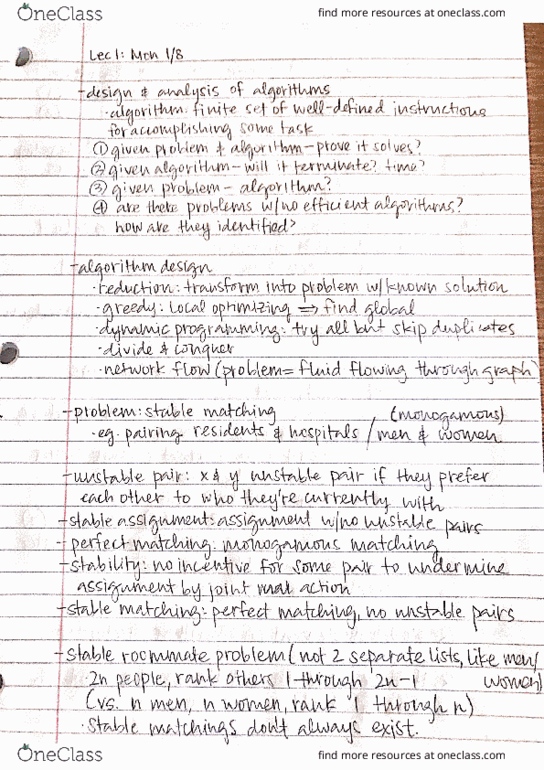 OneClass
find more resources at oneclass.com
Lec 1: Mon 1/8
-design & analysis of algorithms
·algorithm: finite set of well-defined instructions
for accomplishing some task
① given problem & algorithm - prove it solves?
② given algorithm - will it terminate? time?
③ given problem - algorithm?
④ are there problems w/no efficient algorithms?
how are they identified?
-algorithm design
·reduction: transform into problem w/known solution
·greedy: local optimizing ⇒ find global
·dynamic programming: try all but skip duplicates
·divide & conquer
·network flow (problem= fluid flowing through graph)
-problem: stable matching (monogamous)
·eg. pairing residents & hospitals / men & women
-unstable pair: x & y unstable pair if they prefer
each other to who they're currently with
-stable assignment: assignment w/no unstable pairs
-perfect matching: monogamous matching
-stability: no incentive for some pair to undermine
assignment by joint action
-stable matching: perfect matching, no unstable pairs
-stable roommate problem (not 2 separate lists, like men/
women)
·2n people, rank others 1 through 2n-1
(vs. n men, n women, rank 1 through n)
·stable matchings don't always exist.
OneClass
find more resources at oneclass.com